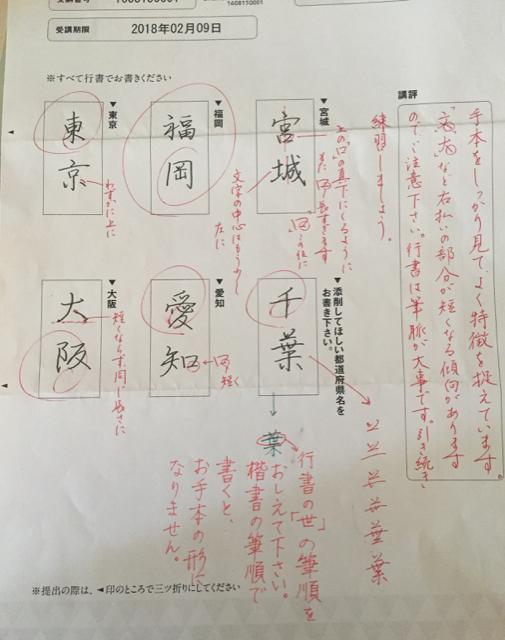 1608150001
受講期限
2018年02月09日
※すべて行書でお書きください
講評
手本をしっかり見て、よく特徴を捉えています。
など右払いの部分が短くなる傾向があります
のでご注意下さい。行書は筆脈が大事です。引き続き
練習しましょう。
▼宮城
宮城
上の「口」の真下にくるように
長すぎます
▼福岡
福岡
文字の中心はもう少し
左に
▼東京
東京
わずかに上に
▼添削してほしい都道府県名を
お書き下さい。
千葉
▼愛知
愛知
短く
▼大阪
大阪
短くならず同じ長さに
葉
行書の「世」の筆順を
おしえて下さい。
楷書の筆順で
書くと、
お手本の形に
なりません。
※提出の際は、◄印のところで三ツ折りにしてください